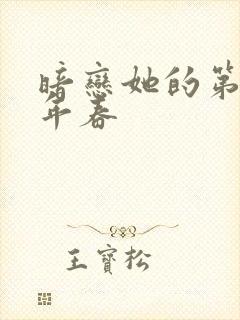 暗戀她的第
年春
王寶松